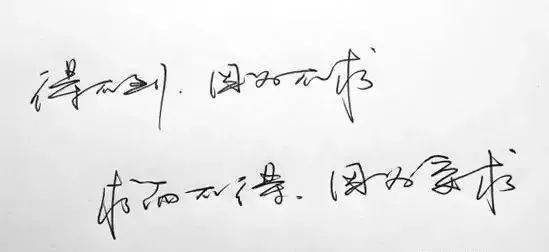 得不到.因为不求
求而不得.因为家求